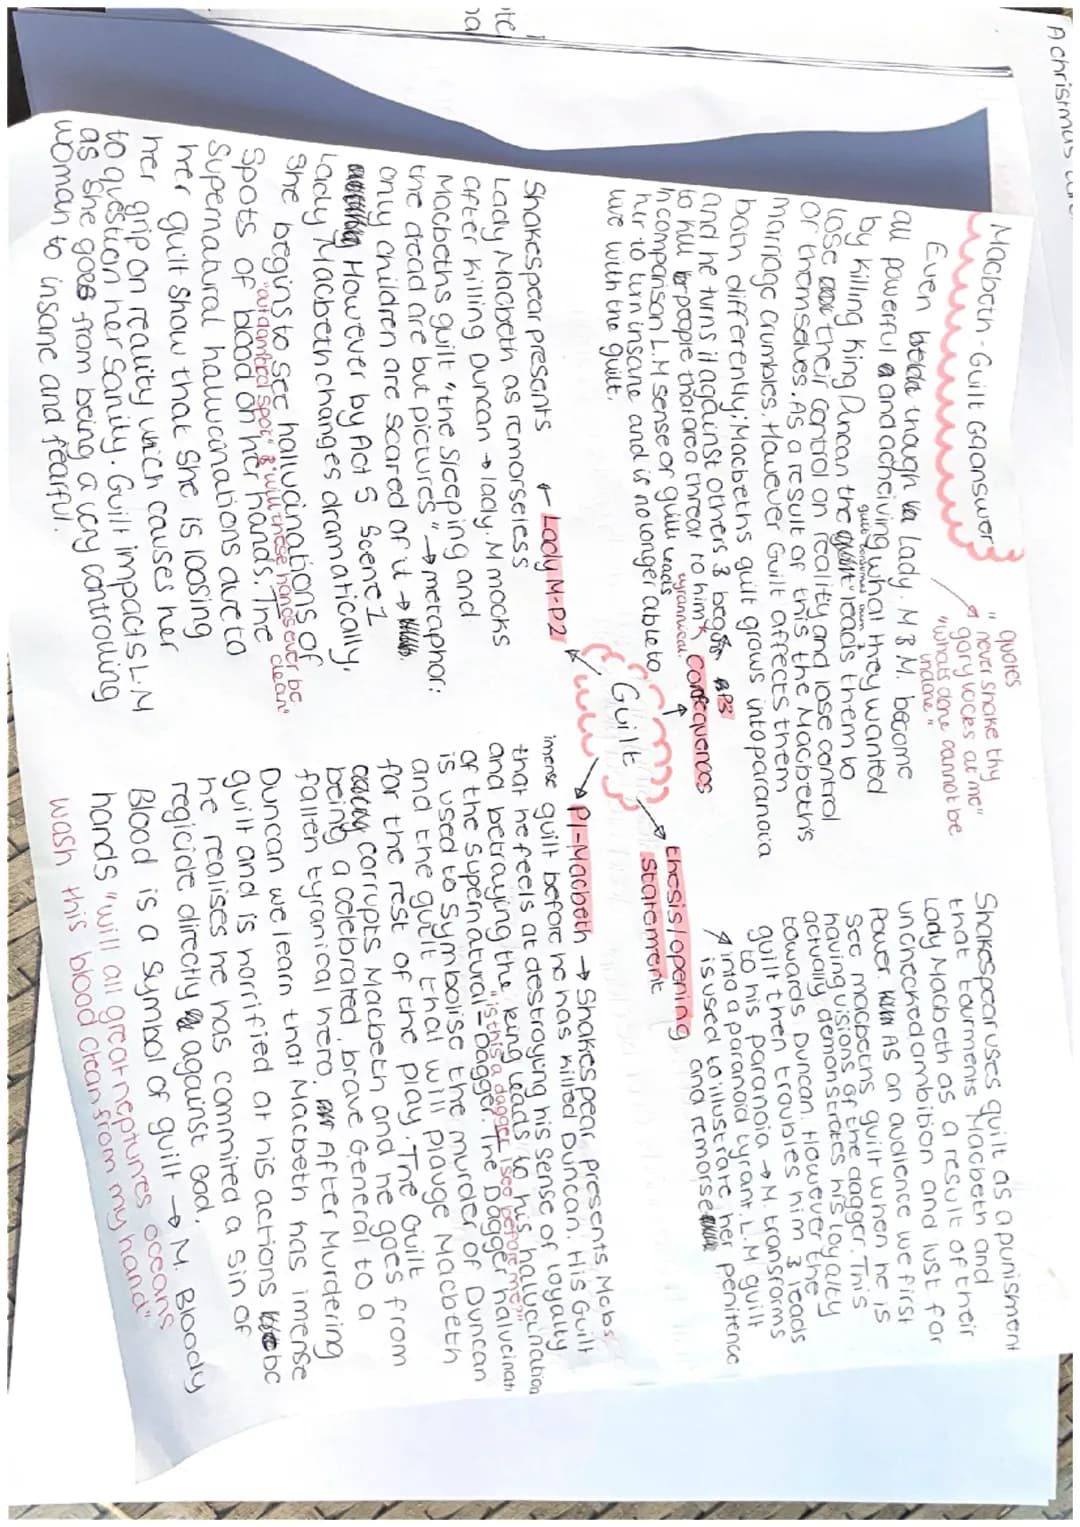 A christmas
Macbeth - Guilt GQ answer
quotes
"never shake thy
gory locks at me"
"whats done cannot be
undone"
Even though Lady. M & M. become
all powerful and acheiving what they wanted
by killing King Duncan the guilt leads them to
lose their control on reality and lose control
of themselves. As a result of this the Macbeths
marriage crumbles. However Guilt affects them
both differently; Macbeths guilt grows into paranoia
and he turns it against others & begs
to kill people that are a threat to him
tyrannical.
In comparison L.M sense of guilt leads
her to turn insane and is no longer able to
live with the guilt.
P3
consequences
Guilt
thesis/opening
statement
Shakespear uses guilt as a punisment
that tourments Macbeth and
Lady Macbeth as a result of their
unchecked ambition and lust for
power. As an audience we first
see macbeths guilt when he is
having visions of the dagger. This
actually demonstrates his loyalty
towards Duncan. However the
guilt then troubles him & leads
to his paranoia → M. transforms
into a paranoid tyrant L.M guilt
is used to illustrate her penitence
and remorse
← Lady M-P2
Shakespear presents
Lady Macbeth as remorseless
after killing Duncan → lady. M mocks
Macbeths guilt "the sleeping and
the dead are but pictures" → metaphor:
only children are scared of it →
However by Act 5 Scene 1
lady Macbeth changes dramatically,
she begins to see hallucinations of
"out damned spot" & "will these hands ever be
clean"
spots of blood on her hands. The
Supernatural hallucinations due to
her guilt show that she is loosing
her grip on reality which causes her
to question her sanity. Guilt impacts L.M
as she goes from being a very controling
woman to insane and fearful.
P1-Macbeth → Shakespear presents Mcbs
imense guilt before he has killed Duncan. His Guilt
that he feels at destroying his sense of loyalty
and betraying the king leads to his halucination
"is this a dagger I see before me?"
of the supernatural - Dagger. The Dagger halucinati
is used to symbolise the murder of Duncan
and the guilt that will plauge Macbeth
for the rest of the play. The Guilt
corrupts Macbeth and he goes from
being a celebrated, brave General to a
fallen tyranical hero. After Murdering
Duncan we learn that Macbeth has imense
guilt and is horrified at his actions bc
he realises he has commited a sin of
regicide directly against God.
Blood is a symbol of guilt → M. Bloody
hands "will all great neptunes oceans
wash this blood clean from my hand"